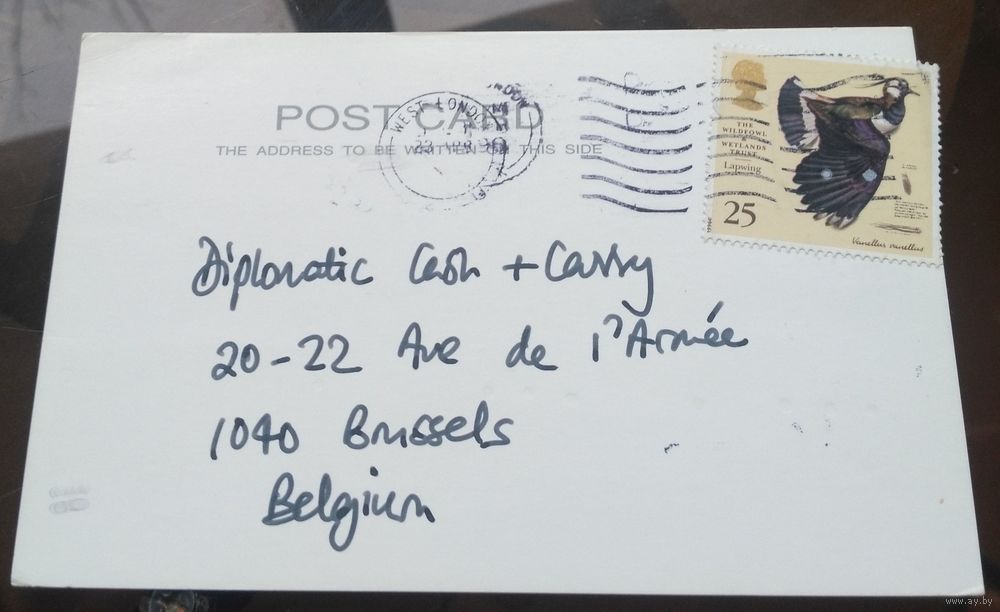 POST CARD
THE ADDRESS TO BE WRITTEN THIS SIDE
WEST LONDON
THE
WILDFOWL
WETLANDS
TRUST
Lapwing
25
1996
Vanellus vanellus
Diplomatic Cash + Carry
20-22 Ave de l'Armée
1040 Brussels
Belgium
www.ay.by